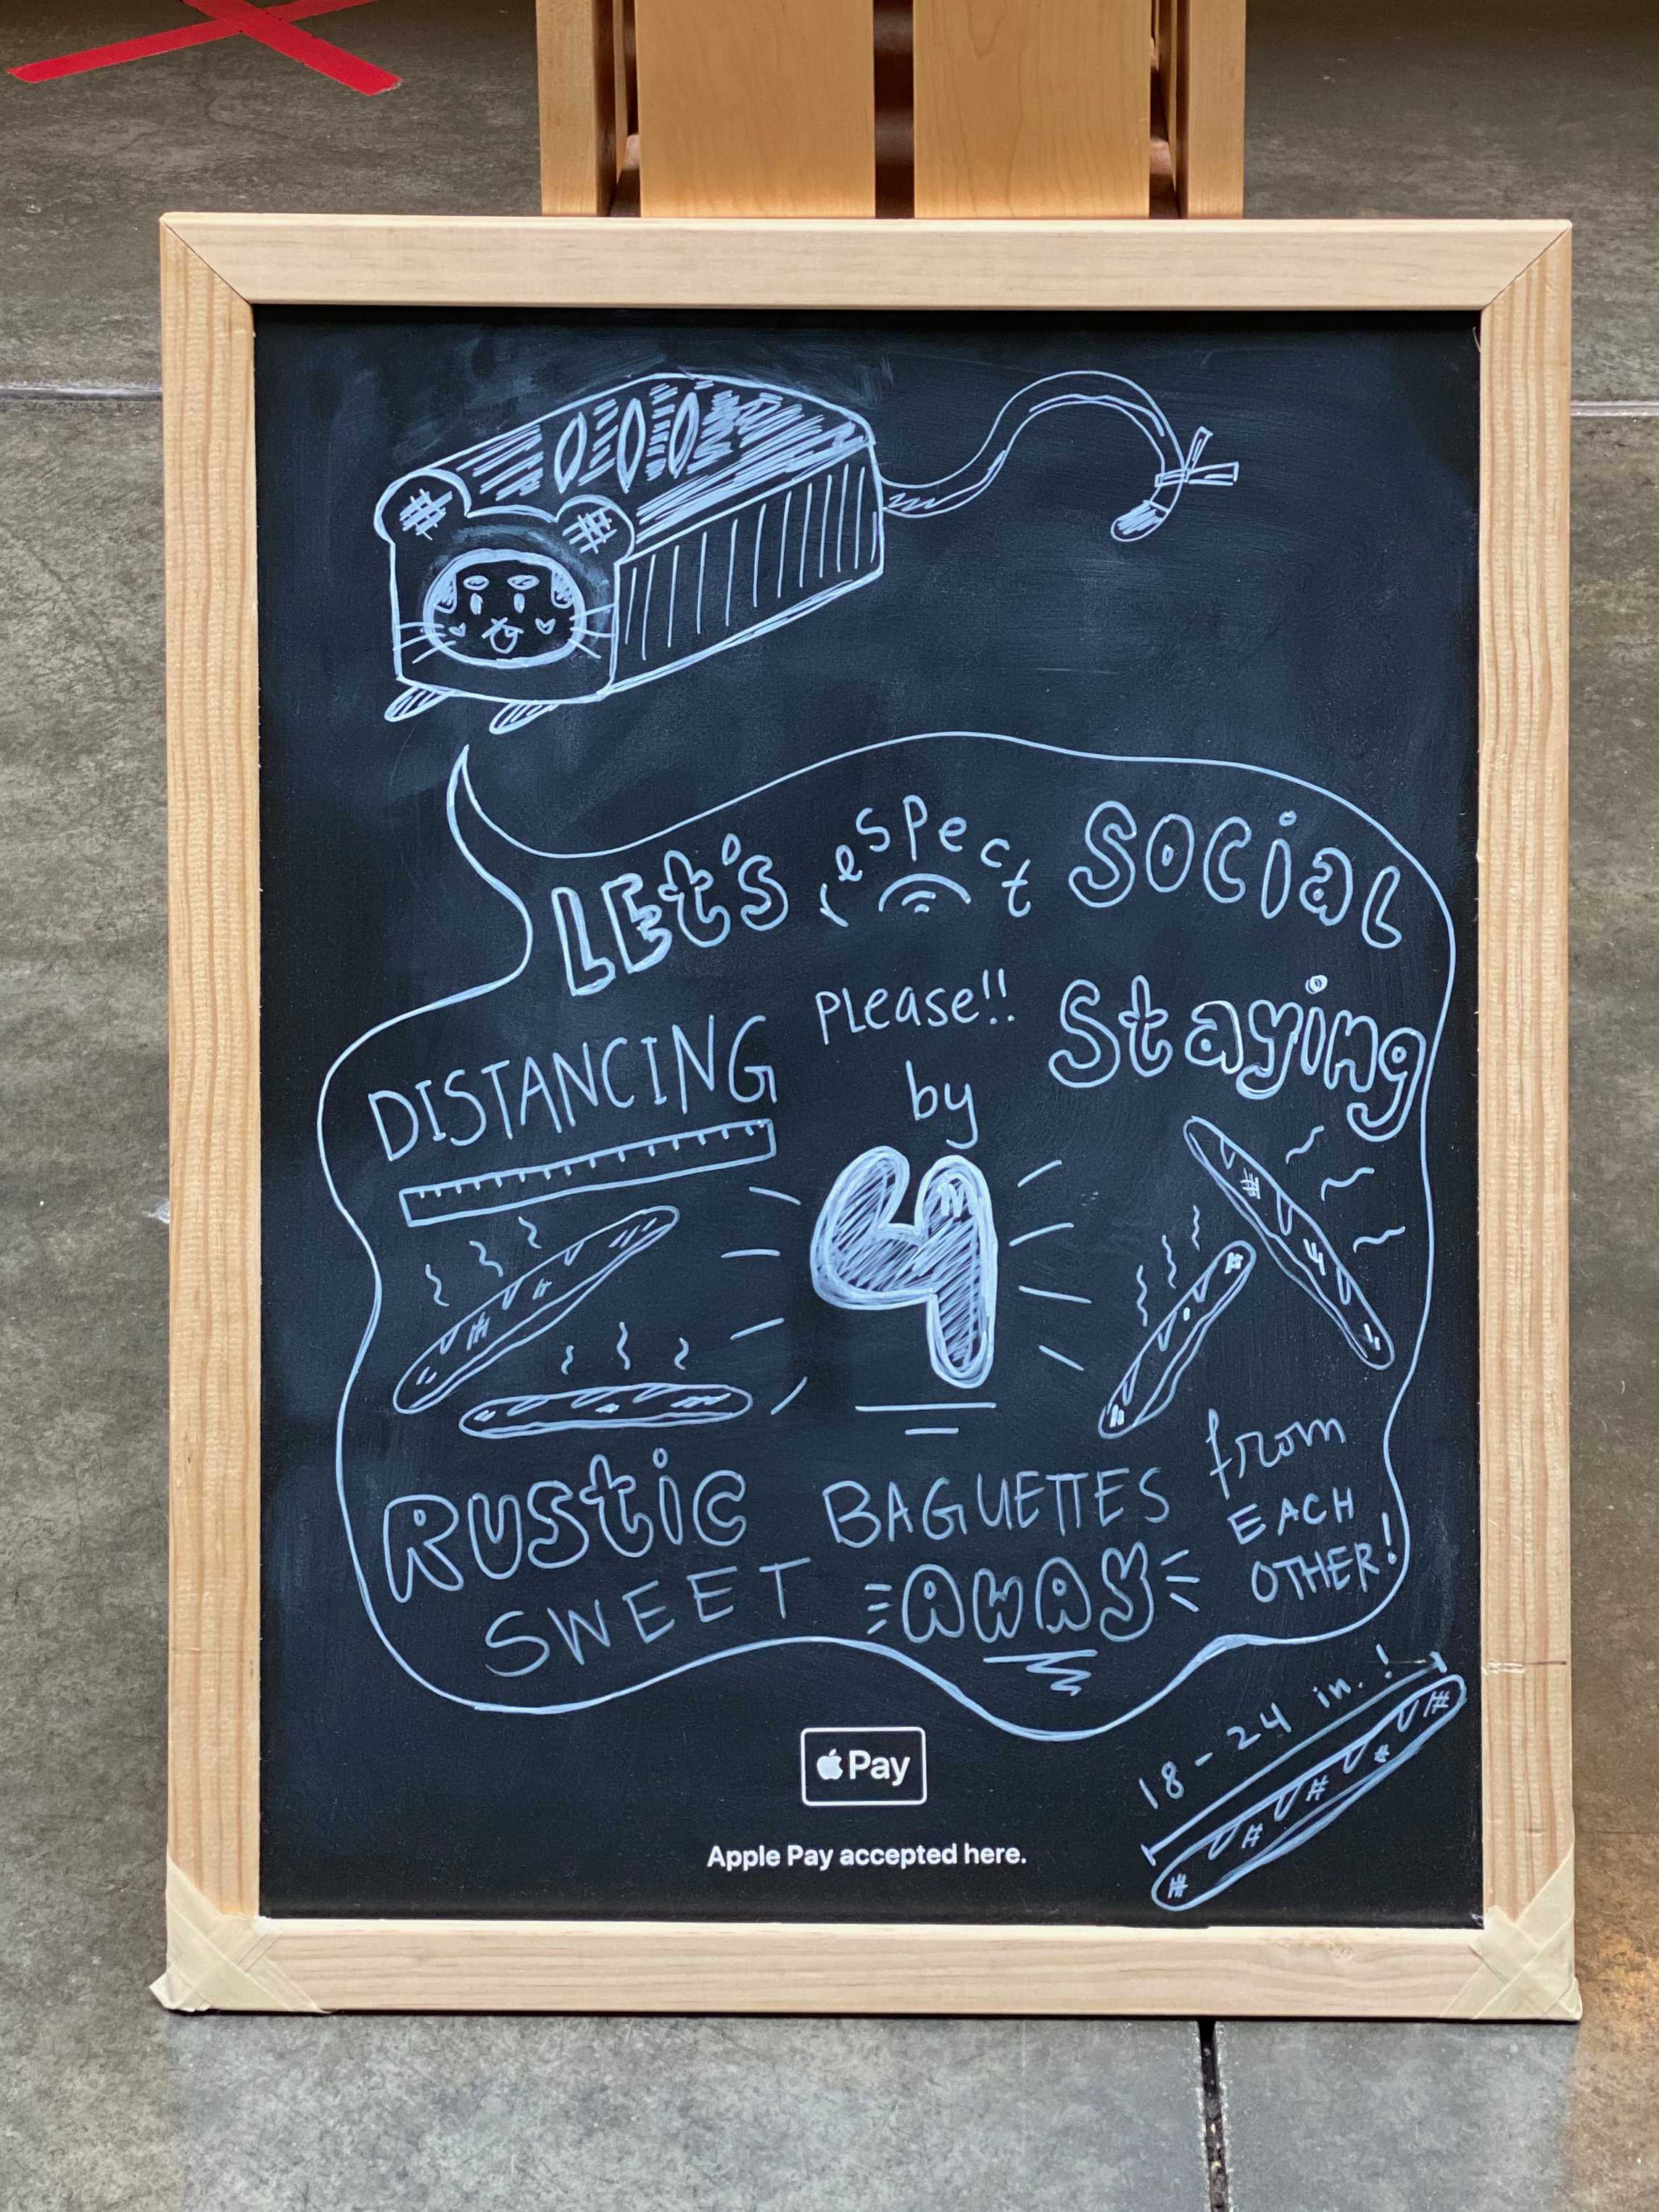 LEt's respect social
DISTANCING Please!! Staying
by
4
RUStic BAGUETTES from
SWEET AWAY EACH
OTHER!
18-24 in.!
Pay
Apple Pay accepted here.